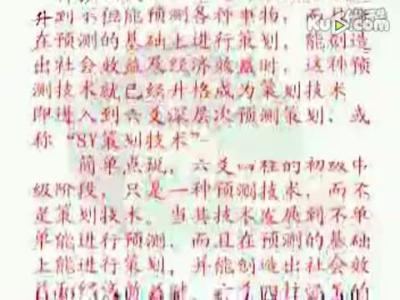 升到不但能预测各种事物,
在预测的基础上进行策划,能创造
出社会效益及经济效益时,这种预
测技术就已经升格成为策划技术
即进入到六爻深层次预测策划、或
称“SY策划技术”
简单点说,六爻四柱的初级中
级阶段,只是一种预测技术,而不
是策划技术。当其技术发展到不单
单能进行预测,而且在预测的基础
上能进行策划,并能创造出社会效